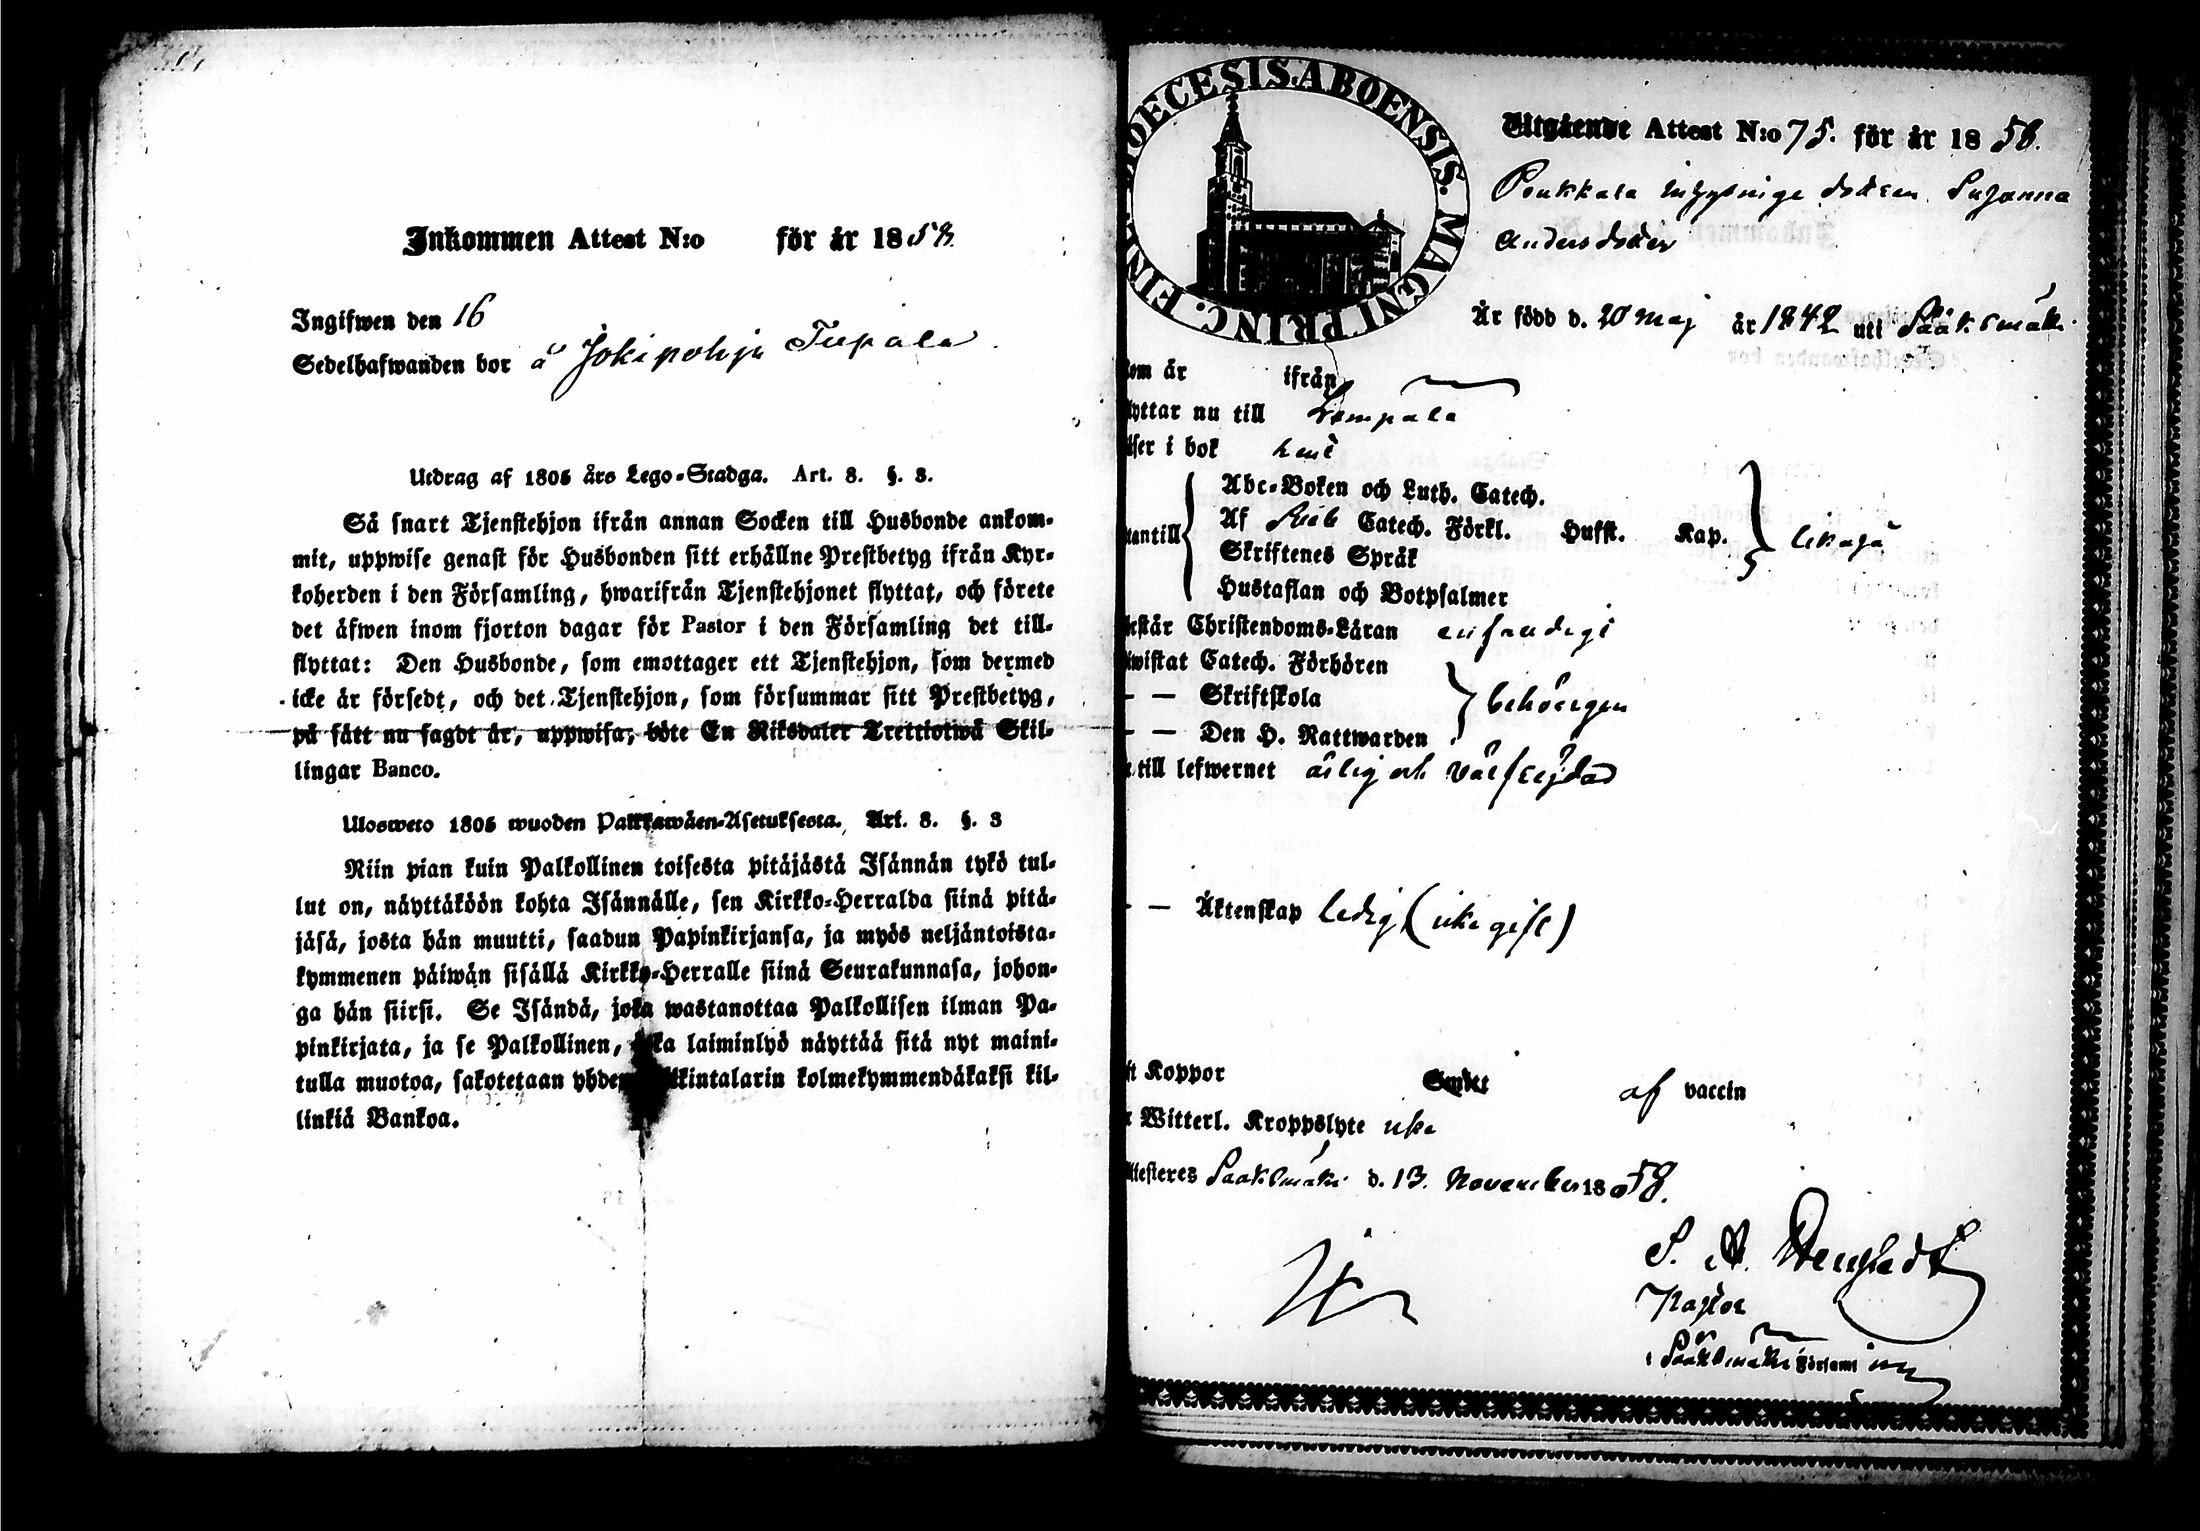 Inkommen Attest N:o för år 1858.
Ingifwen den 16
Sedelhafwanden bor å Jokipohja Tupala
Utdrag af 1805 års Lego-Stadga. Art. 8. §. 3.
Så snart Tjenstehjon ifrån annan Socken till Husbonde ankom-
mit, uppwise genast för Husbonden sitt erhållne Prestbetyg ifrån Kyr-
koherden i den Församling, hwarifrån Tjenstehjonet flyttat, och förete
det äfwen inom fjorton dagar för Pastor i den Församling det till-
flyttat: Den Husbonde, som emottager ett Tjenstehjon, som dermed
icke är försedt, och det Tjenstehjon, som försummar sitt Prestbetyg,
på sätt nu sagdt är, uppwisa, böte En Riksdaler Trettiotwå Skil-
lingar Banco.
Ulosweto 1805 wuoden Palkkawäen-Asetuksesta. Art. 8. §. 3
Niin pian kuin Palkollinen toisesta pitäjästä Isännän tykö tul-
lut on, näyttäköön kohta Isännälle, sen Kirkko-Herralda siinä pitä-
jäsä, josta hän muutti, saadun Papinkirjansa, ja myös neljäntoista-
kymmenen päiwän sisällä Kirkko-Herralle siinä Seurakunnasa, johon-
ga hän siirsi. Se Isändä, joka wastanottaa Palkollisen ilman Pa-
pinkirjata, ja se Palkollinen, joka laiminlyö näyttää sitä nyt maini-
tulla muotoa, sakotetaan yhden kintalarin kolmekymmendäkaksi kil-
linkiä Bankoa.
DIOECESIS ABOENSIS. MAGNI PRINC. FINL.
Utgående Attest N:o 75. för år 1858.
inhysinge dottren Susanna
Andersdotter
Är född d. 20 Maj år 1842 uti Sääksmäki
om år ifrån
lyttar nu till Lempäla
äser i bok rent
tantill
Abc-Boken och Luth. Catech.
Af Catech. Förkl. Husst. Kap.
Skriftenes Språk
Hustaflan och Botpsalmer
likaså
rstår Christendoms-Läran enfaldigt
iwistat Catech. Förhören
— — Skriftskola
— — Den H. Nattwarden
behörigen
till lefwernet ärlig och välfrejdad
— — Äktenskap ledig (icke gift)
ft Koppor af vaccin
r Witterl. Kroppslyte icke
ttesteres Sääksmäki d. 13. November 1858.
S. A.
Pastor
i Sääksmäki Församling